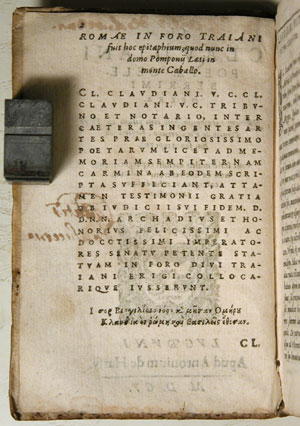 ROMAE IN FORO TRAIANI
fuit hoc epitaphium, quod nunc in
domo Pomponij Læti in
monte Caballo.
CL. CLAVDIANI. V.C. CL.
CLAVDIANI. V.C. TRIBV
NO ET NOTARIO, INTER
CAETERAS INGENTES AR
TES PRAE GLORIOSISSIMO
POETARVM LICET AD ME
MORIAM SEMPITERNAM
CARMINA AB EODEM SCRI
PTA SVFFICIANT, ATTA
MEN TESTIMONII GRATIA
OB IVDICII SVI FIDEM. D.
D.NN. ARCHADIVS ET HO
NORIVS FELICISSIMI AC
DOCCTISSIMI IMPERATO
RES SENATV PETENTE STA
TVAM IN FORO DIVI TRA
IANI ERIGI COLLOCA
RIQVE IVSSERVNT.
CL.
LVGDVNI
Apud Antonium de Harsy